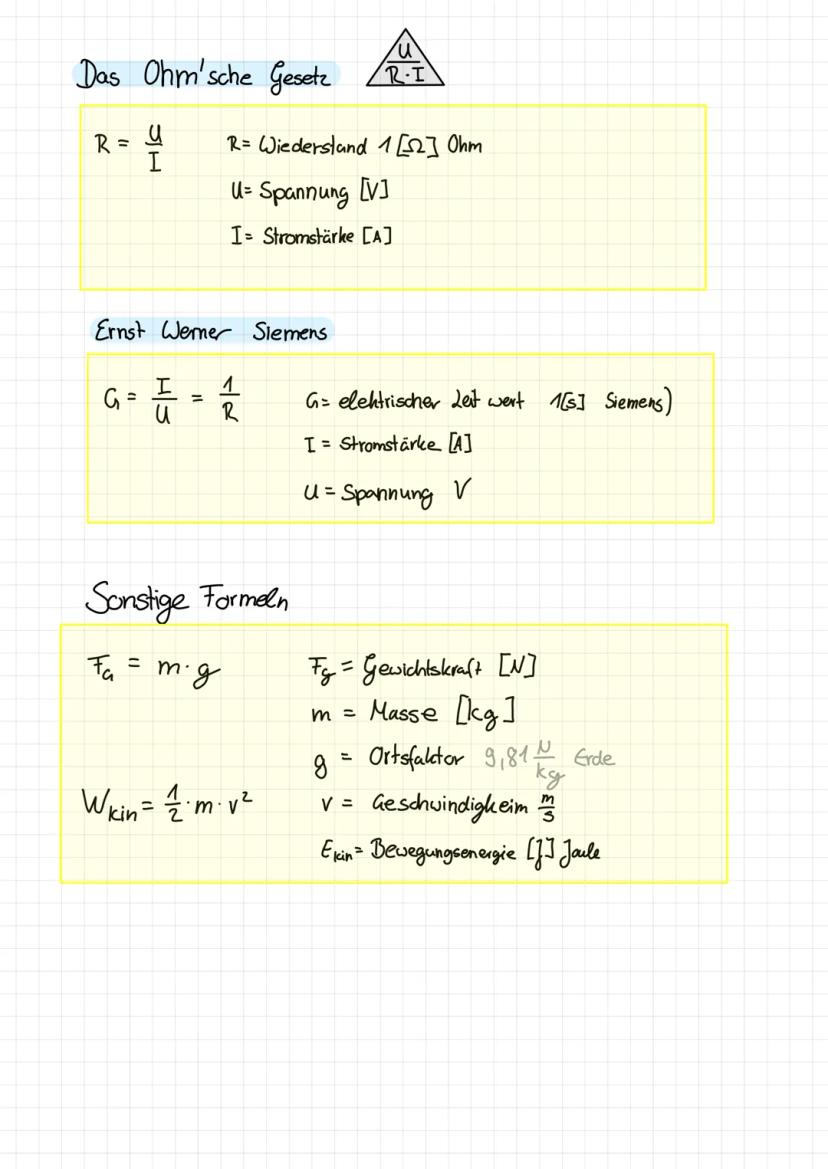 Das Ohm'sche Gesetz
U
R·I
R = U/I
R = Wiederstand 1 [Ω] Ohm
U = Spannung [V]
I = Stromstärke [A]
Ernst Werner Siemens
G = I/U = 1/R
G = elektrischer Leit wert 1[S] Siemens)
I = Stromstärke [A]
U = Spannung V
Sonstige Formeln
FG = m · g
Fg = Gewichtskraft [N]
m = Masse [kg]
g = Ortsfaktor 9,81 N/kg Erde
Wkin = 1/2 · m · v²
v = Geschwindigkeim m/s
Ekin = Bewegungsenergie [J] Joule